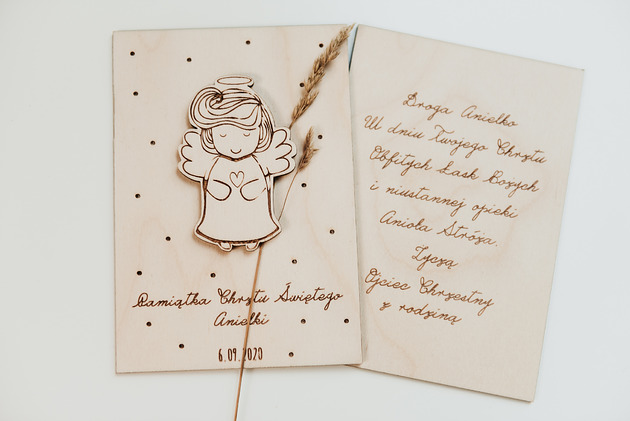 Pamiątka Chrztu Świętego
Anielki
6.09.2020
Droga Anielko
W dniu Twojego Chrztu
Obfitych Łask Bożych
i nieustannej opieki
Anioła Stróża.
Życzą
Ojciec Chrzestny
z rodziną